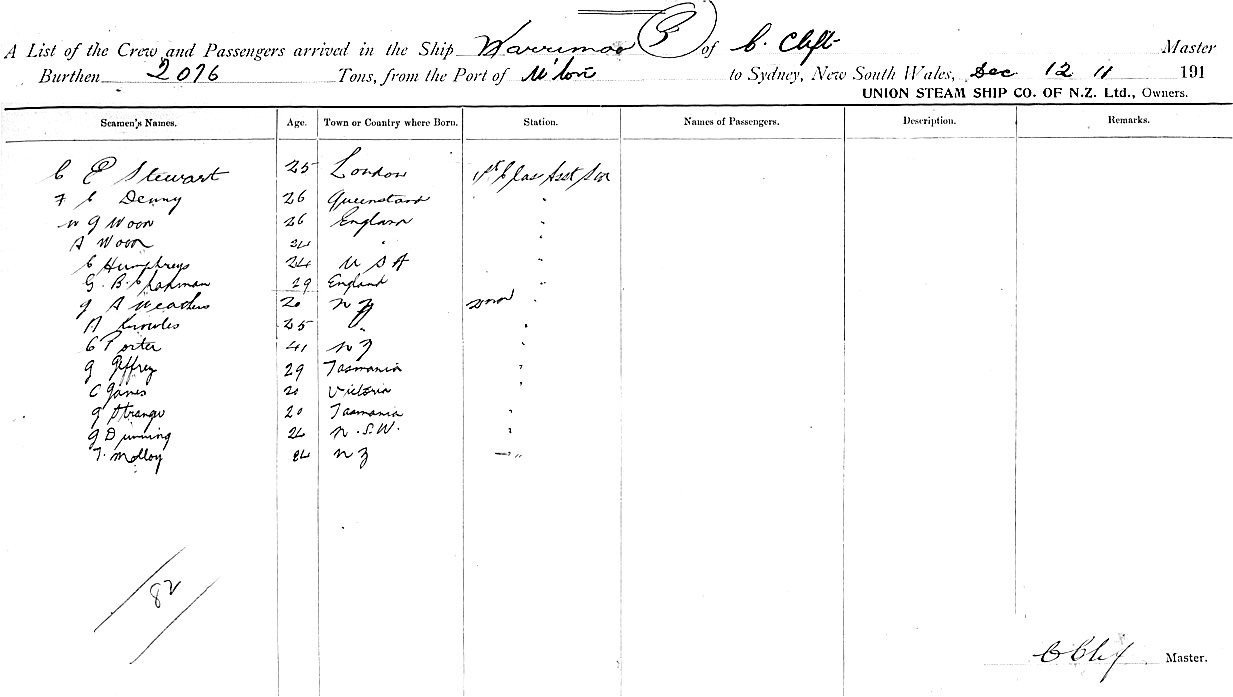 A List of the Crew and Passengers arrived in the Ship Warrimoo of C. Clift Master
Burthen 2076 Tons, from the Port of to Sydney, New South Wales, Dec 12 11 191
UNION STEAM SHIP CO. OF N.Z. Ltd., Owners.
Seamen's Names. Age. Town or Country where Born. Station. Names of Passengers. Description. Remarks.
C E Stewart 25 London 1st Class Asst
F C Denny 26 Queensland "
W G Woon 26 England "
A Woon 24 " "
C Humphreys 24 U S A "
G. B. Chapman 29 England "
J A Weathers 20 N Z
A Knowles 25 " "
C Porter 41 N Z "
G Jeffrey 29 Tasmania "
C James 20 Victoria "
G Strange 20 Tasmania "
J Dunning 24 N.S.W. "
T. Molloy 24 N Z "
82
C Clift Master.